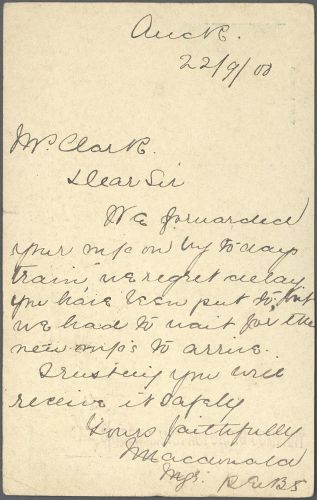 Auck.
22/9/00
Mr. Clark.
Dear Sir
We forwarded
your m/c on by to day
train, we regret delay
you have been put to, but
we had to wait for the
new m/cs to arrive.
Trusting you will
receive it safely
Yours faithfully
Macdonald
Mgr.